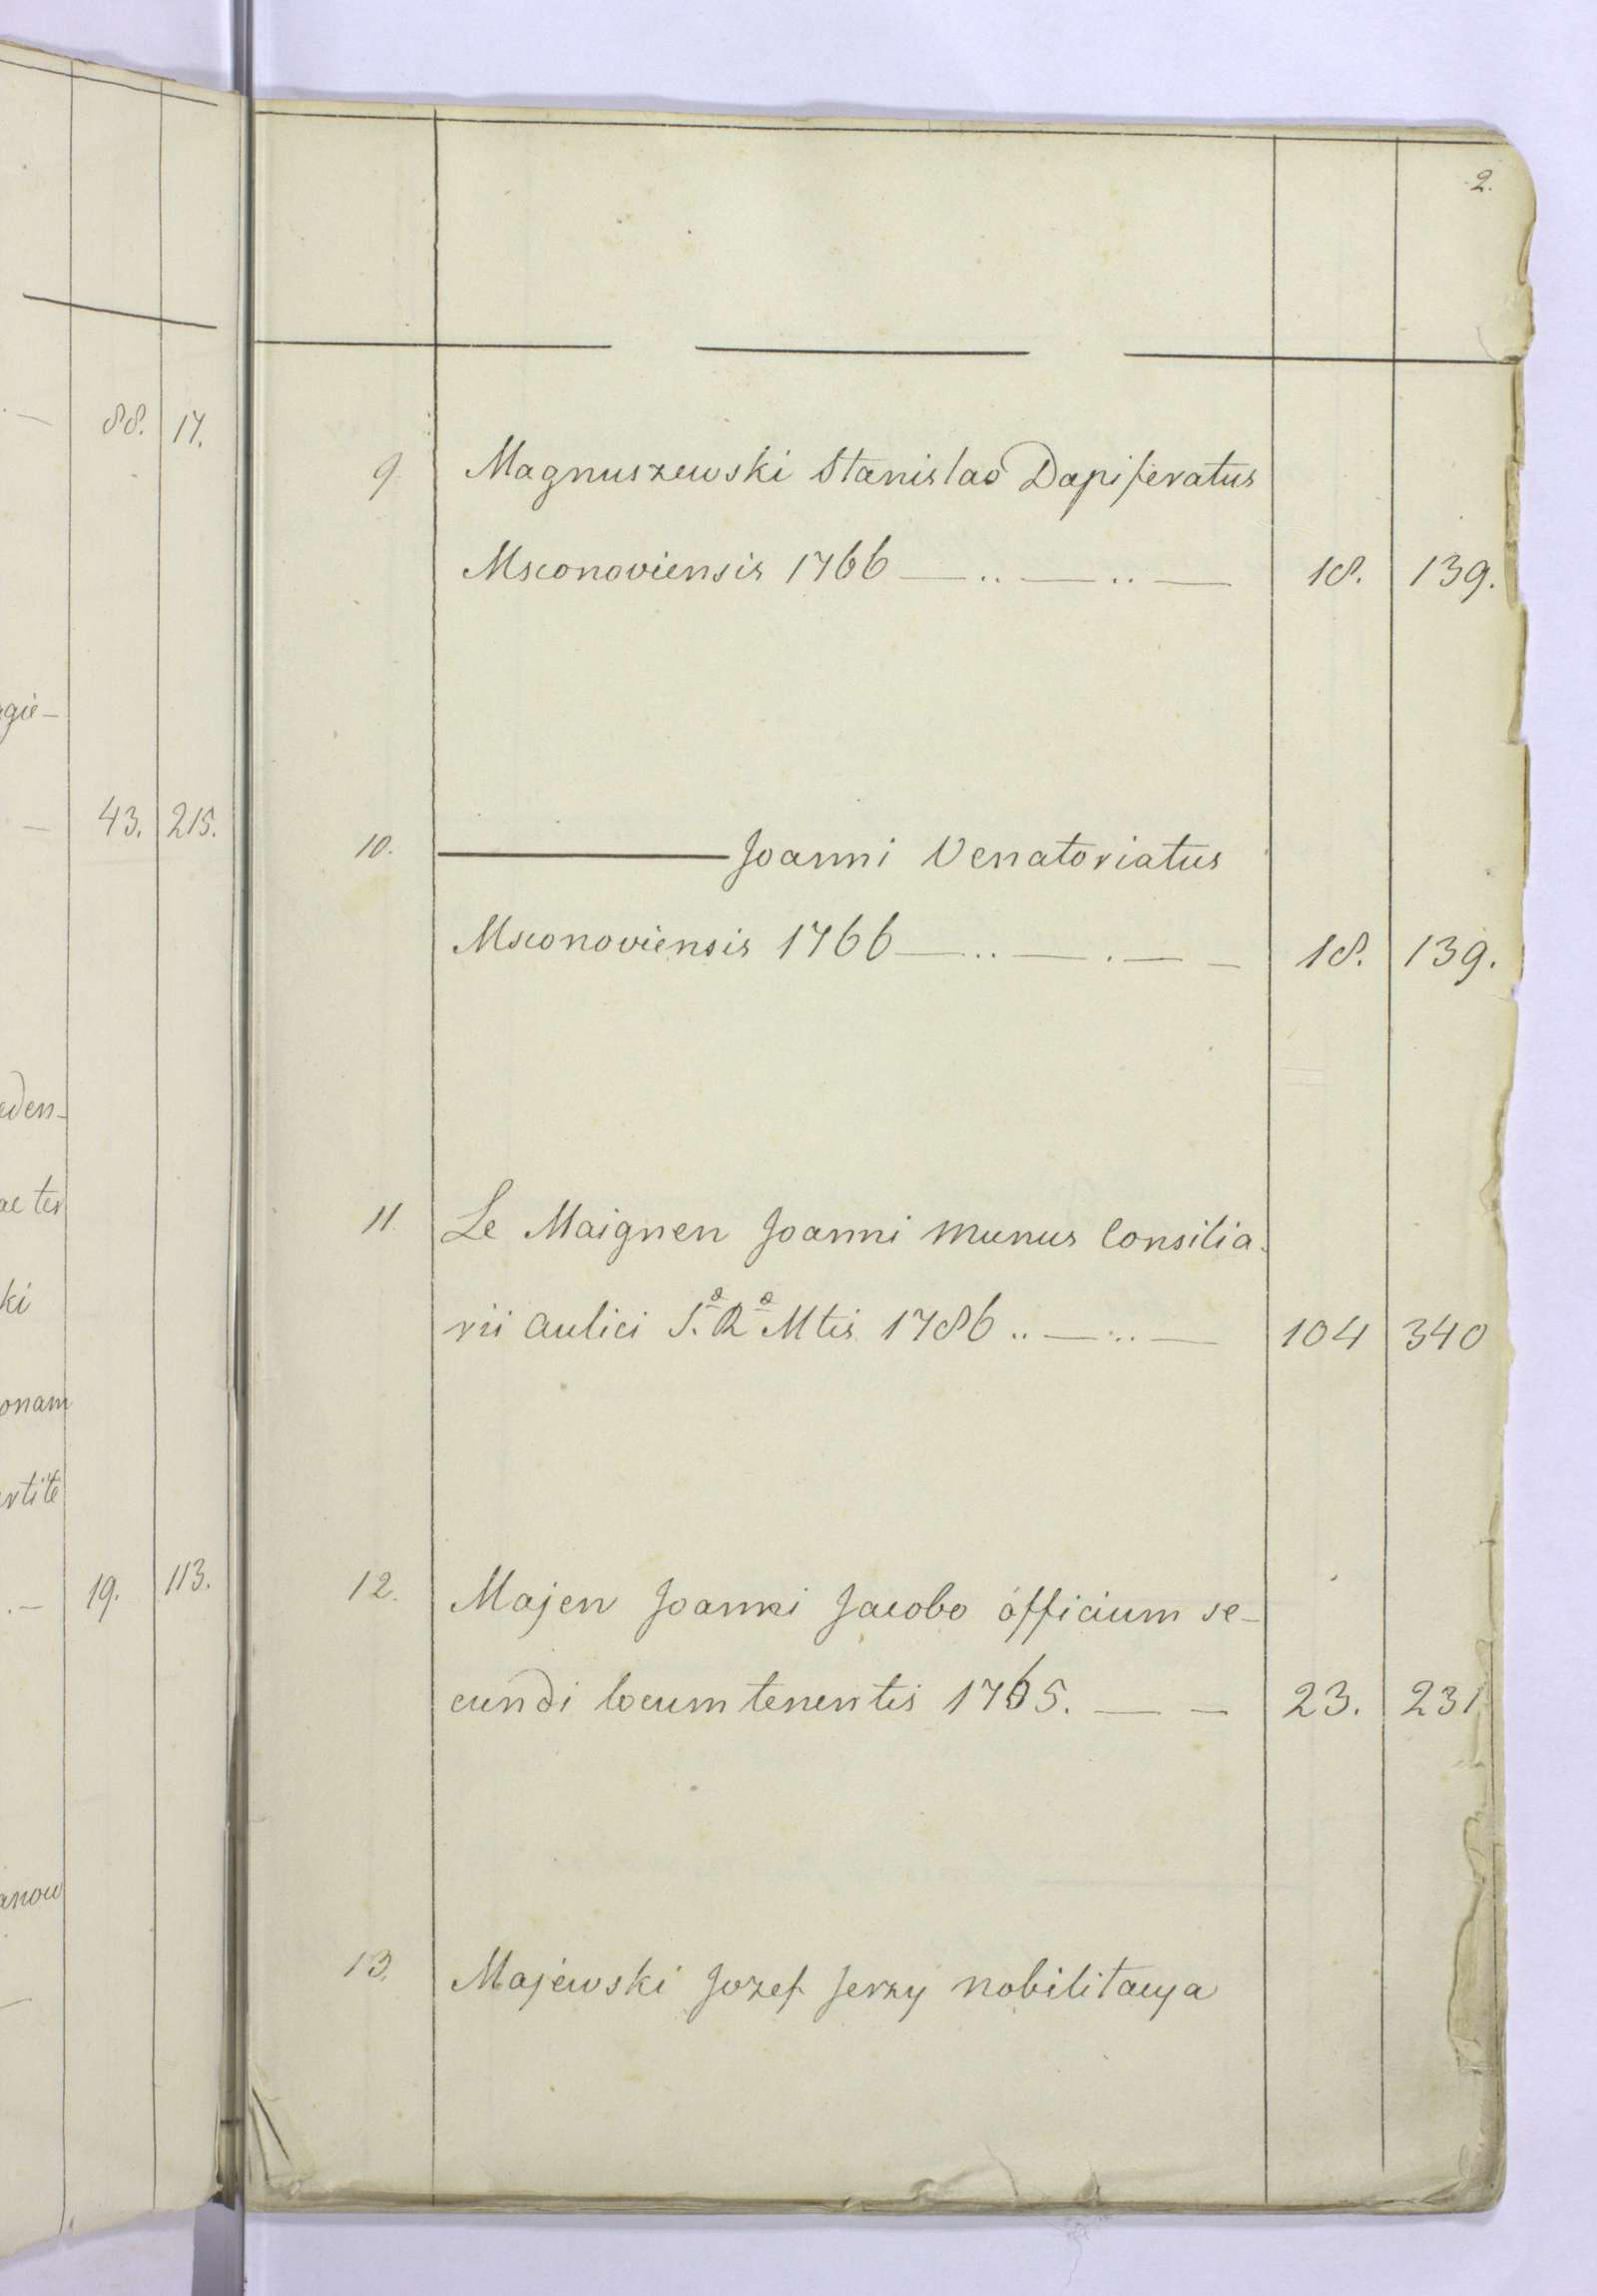 2.
88. 17.
9 Magnuszewski Stanislao Dapiferatus
Msconoviensis 1766 — .. — .. — 18. 139.
gie-
43. 215.
10. ——— Joanni Venatoriatus
Msconoviensis 1766 — .. — . — — 18. 139.
den-
ac ter
11. Le Maignen Joanni munus Consilia-
rii aulici S.æ Ræ Mtis 1786 .. — .. — 104 340
ki
onam
rtite
19. 113.
12. Majen Joanni Jacobo officium se-
cundi locumtenentis 1765. — — 23. 231
anow
13. Majewski Jozef Jerzy nobilitacya